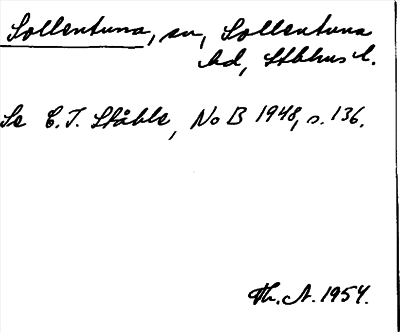 Sollentuna, sn, Sollentuna
hd, Sthlms l.
Se C. I. Ståhle, NoB 1948, s. 136.
Th. A. 1954.